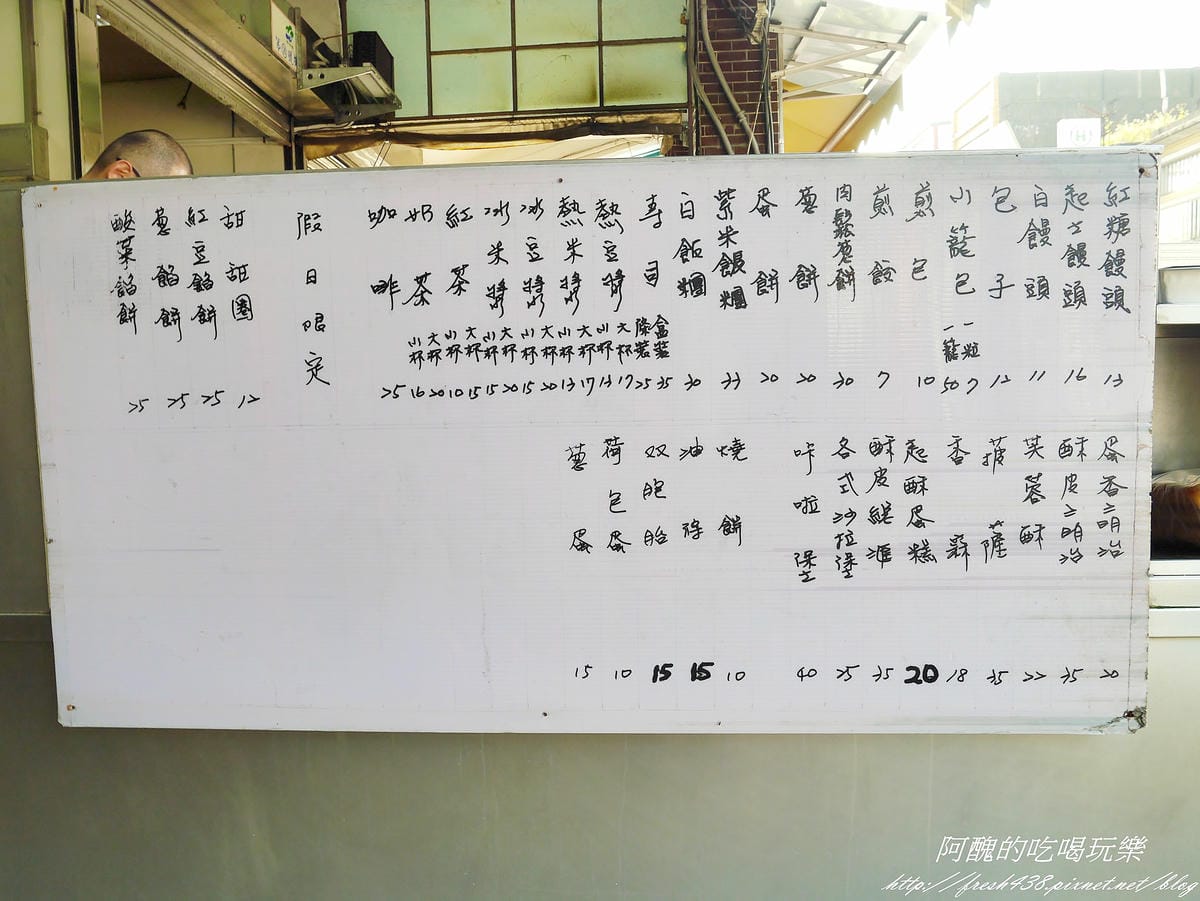 紅糖饅頭 13
起士饅頭 16
白饅頭 11
包子 12
小籠包 一粒 7 一籠 50
煎包 10
煎餃 7
肉鬆蔥餅 30
蔥餅 20
蛋餅 20
紫米飯糰 33
白飯糰 30
壽司 盒裝 35 條裝 25
熱豆漿 大杯 17 小杯 13
熱米漿 大杯 17 小杯 13
冰豆漿 大杯 20 小杯 15
冰米漿 大杯 20 小杯 15
紅茶 大杯 15 小杯 10
奶茶 大杯 20 小杯 16
咖啡 25
假日限定
甜甜圈 12
紅豆餡餅 25
蔥餡餅 25
酸菜餡餅 25
蛋香三明治 20
酥皮三明治 35
芙蓉酥 22
菠蘿 35
香 18
起酥蛋糕 20
酥皮 35
各式沙拉堡 25
咔啦堡 40
燒餅 10
油條 15
双胞胎 15
荷包蛋 10
蔥蛋 15
阿醜的吃喝玩樂
http://fresh438.pixnet.net/blog